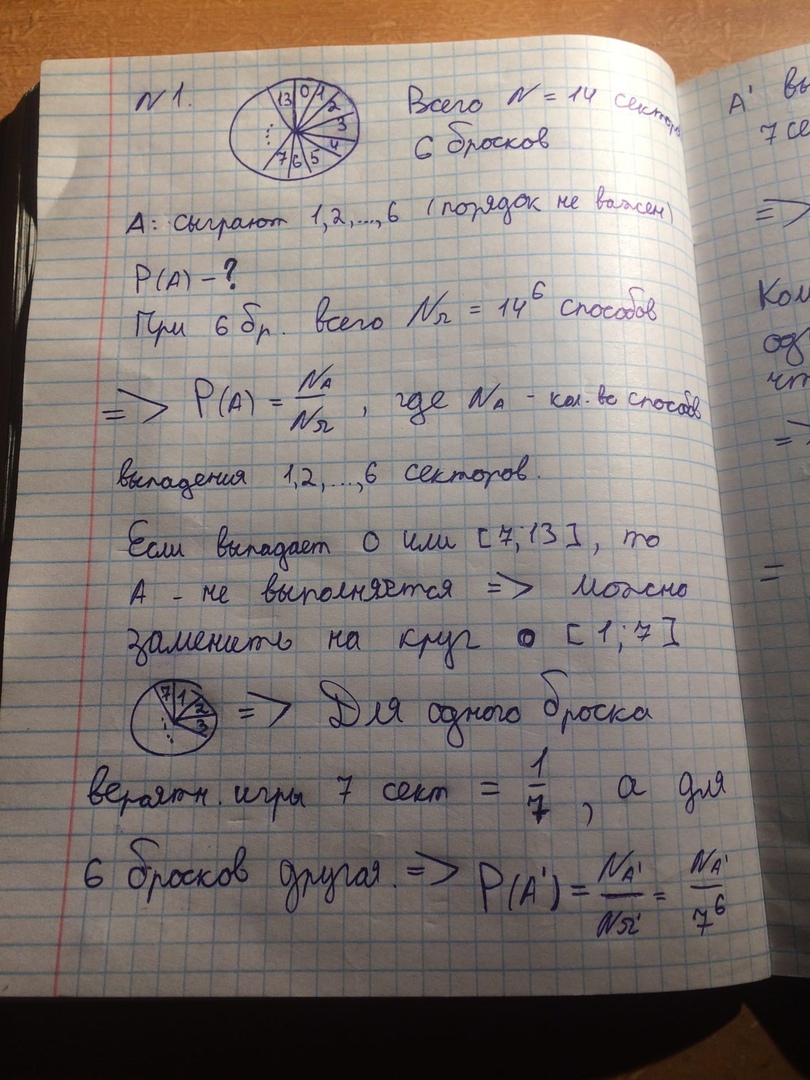 N 1.
13 0 1 2 3 4 5 6 7 ...
Всего N = 14 секторов
6 бросков
A: сыграют 1,2,...,6 (порядок не важен)
P(A) - ?
При 6 бр. всего NΩ = 14⁶ способов
=> P(A) = NA/NΩ, где NA - кол-во способов
выпадения 1,2,...,6 секторов.
Если выпадает 0 или [7;13], то
A - не выполняется => можно
заменить на круг с [1;7]
7 1 2 3 ...
=> Для одного броска
вероятн. игры 7 сект = 1/7, а для
6 бросков другая. => P(A') = NA'/NΩ' = NA'/7⁶
A' вы
7 се
=>
Ком
од
чт
=>
=